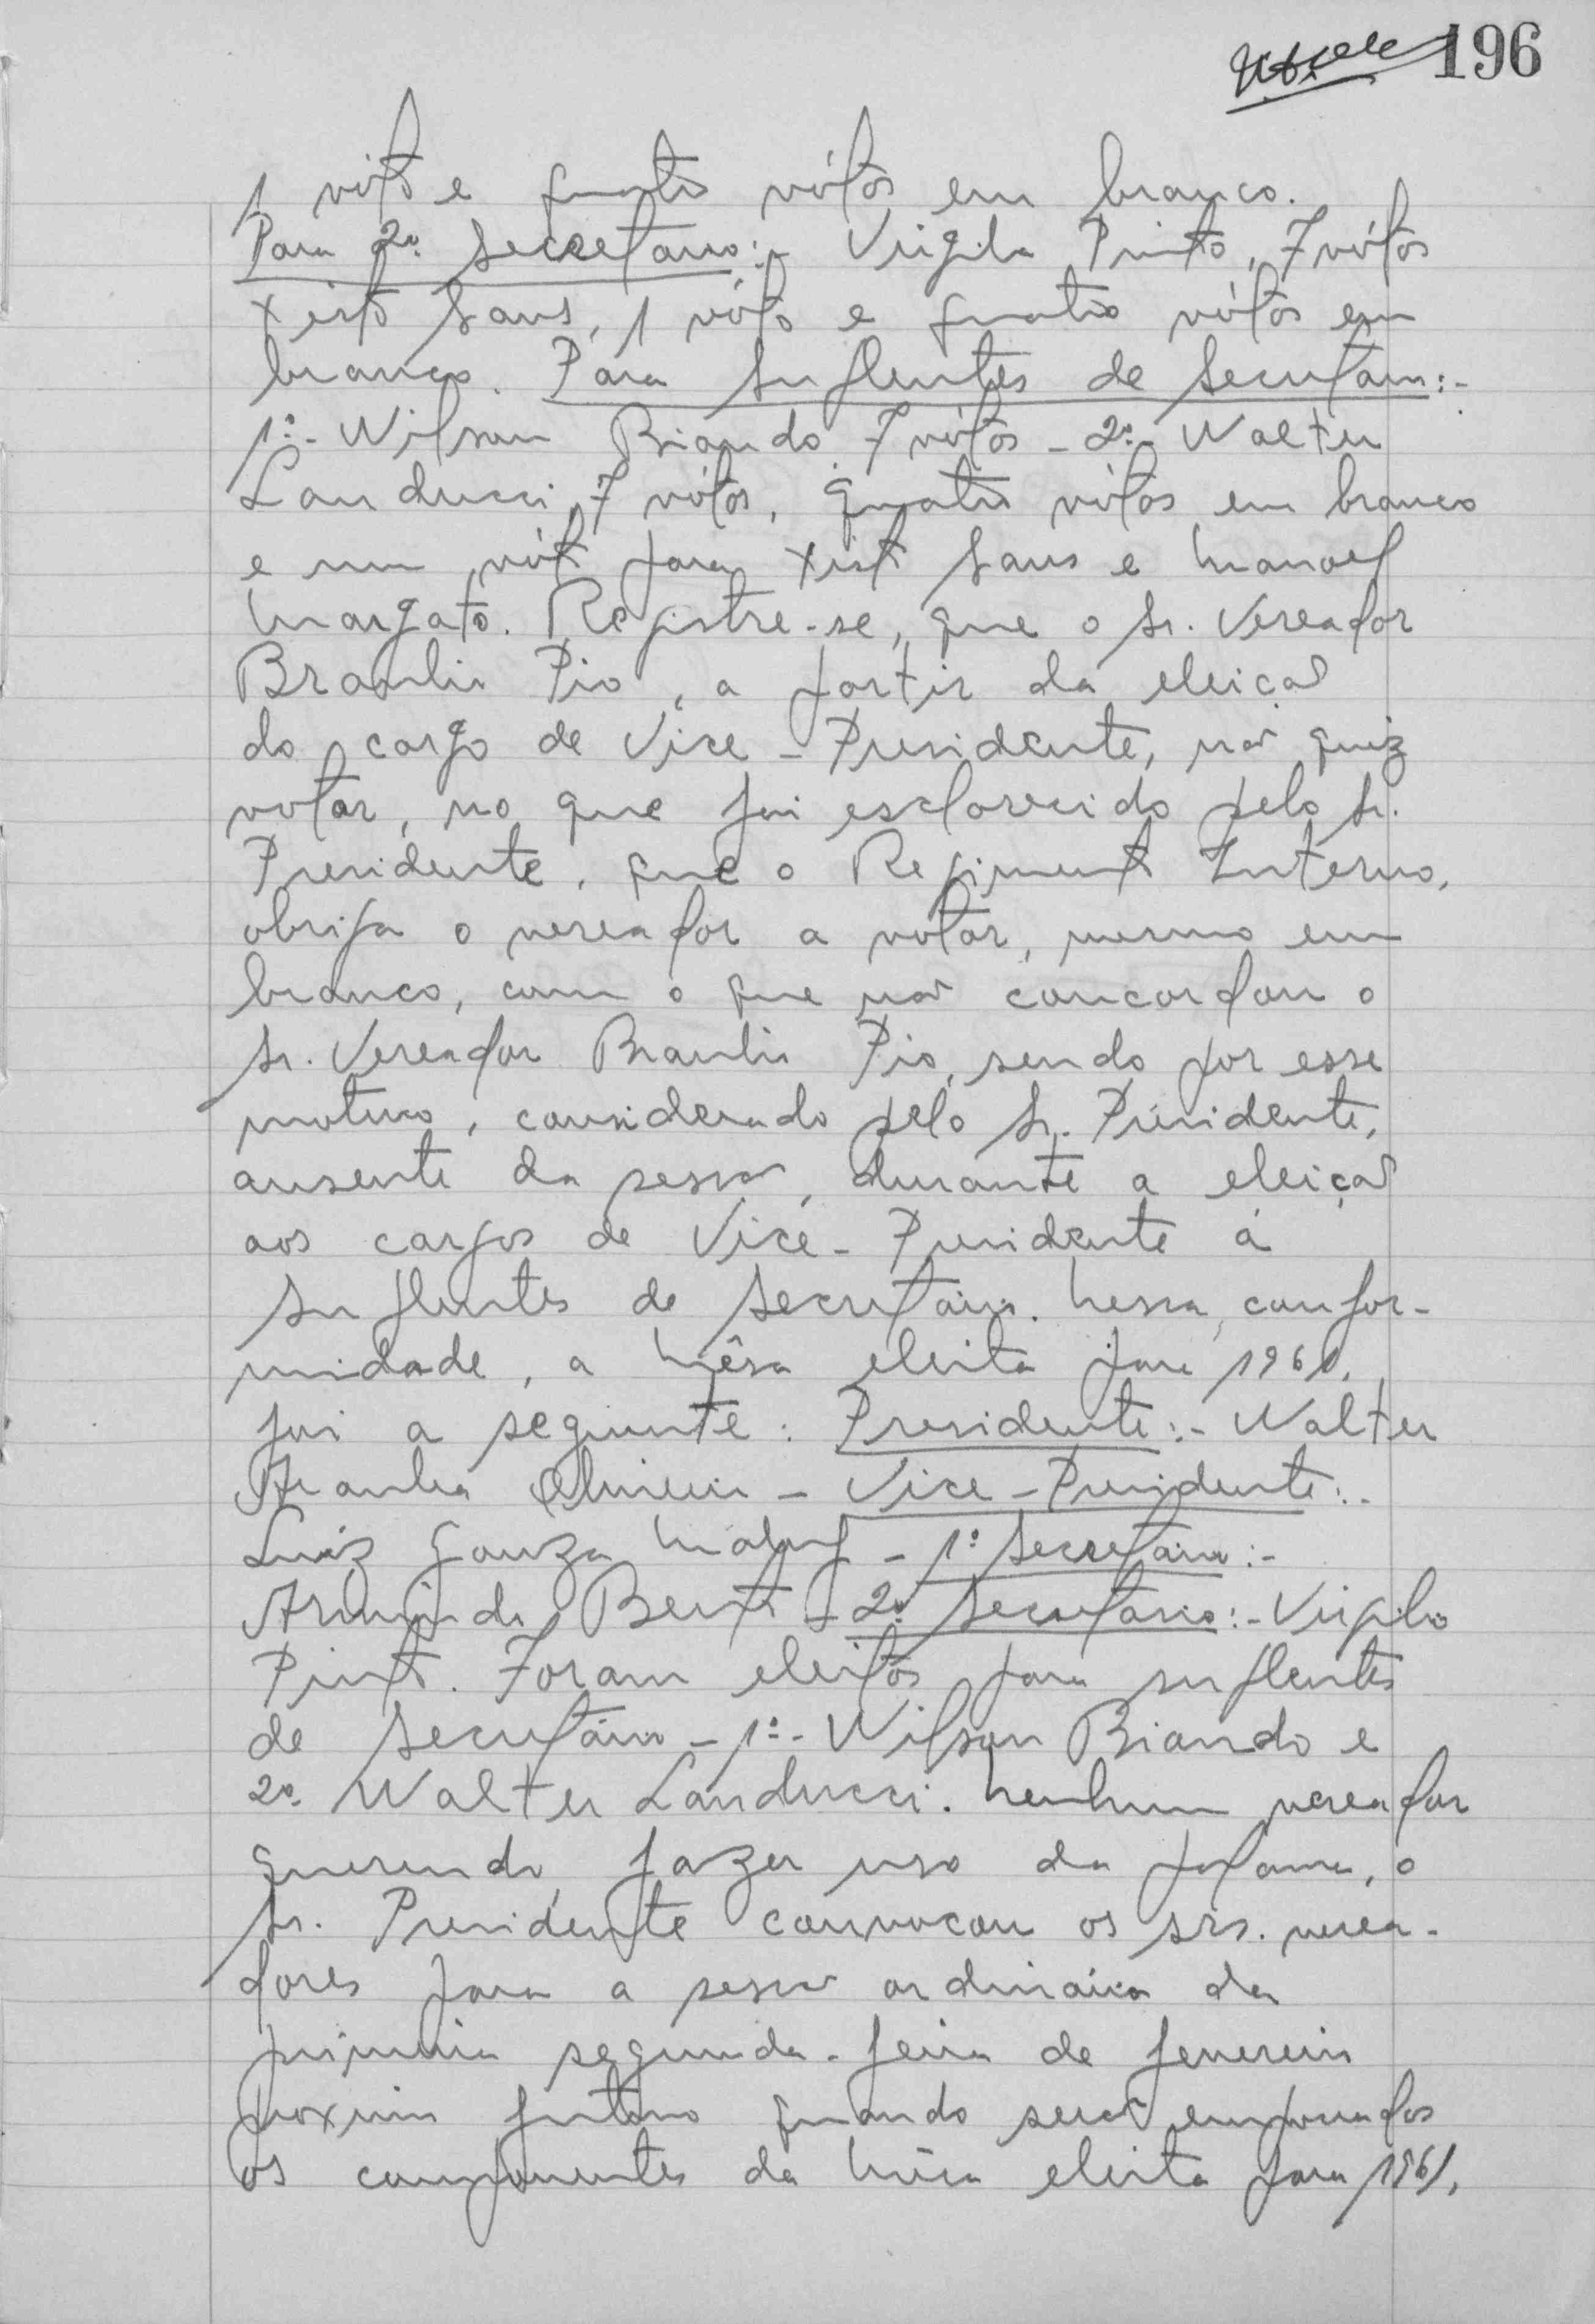 196
1 vóto e quatro vótos em branco.
Para 2º Secretario:- Virgilio Pinto, 7 vótos
Xisto Sans, 1 vóto e quatro vótos em
branco. Para Suplentes de Secretario:-
1º- Wilson Biondo 7 vótos - 2º- Walter
Landucci, 7 vótos, quatro vótos em branco
e um vóto para Xisto Sans e Manoel
Margato. Registre-se, que o Sr. Vereador
Braulio Pio, a partir da eleição
do cargo de Vice-Presidente, não quiz
votar, no que foi esclarecido pelo Sr.
Presidente, que o Regimento Interno,
obriga o vereador a votar, mesmo em
branco, com o que não concordou o
Sr. Vereador Braulio Pio, sendo por esse
motivo, considerado pelo Sr. Presidente,
ausente da sessão, durante a eleição
aos cargos de Vice-Presidente á
Suplentes de Secretário. Nessa confor-
midade, a Mêsa eleita para 1961,
foi a seguinte: Presidente:- Walter
Aranha - Vice-Presidente:-
Luiz Gonzaga Maluf - 1º Secretário:-
Armindo Bento - 2º Secretario:- Virgilio
Pinto. Foram eleitos para suplentes
de Secretário - 1º- Wilson Biondo e
2º Walter Landucci. Nenhum vereador
querendo fazer uso da palavra, o
Sr. Presidente convocou os srs. verea-
dores para a sessão ordinária da
primeira segunda-feira de fevereiro
proximo futuro quando serão empossados
os componentes da Mêsa eleita para 1961.